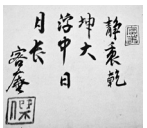 静裏乾
坤大
中日
月长
容庵